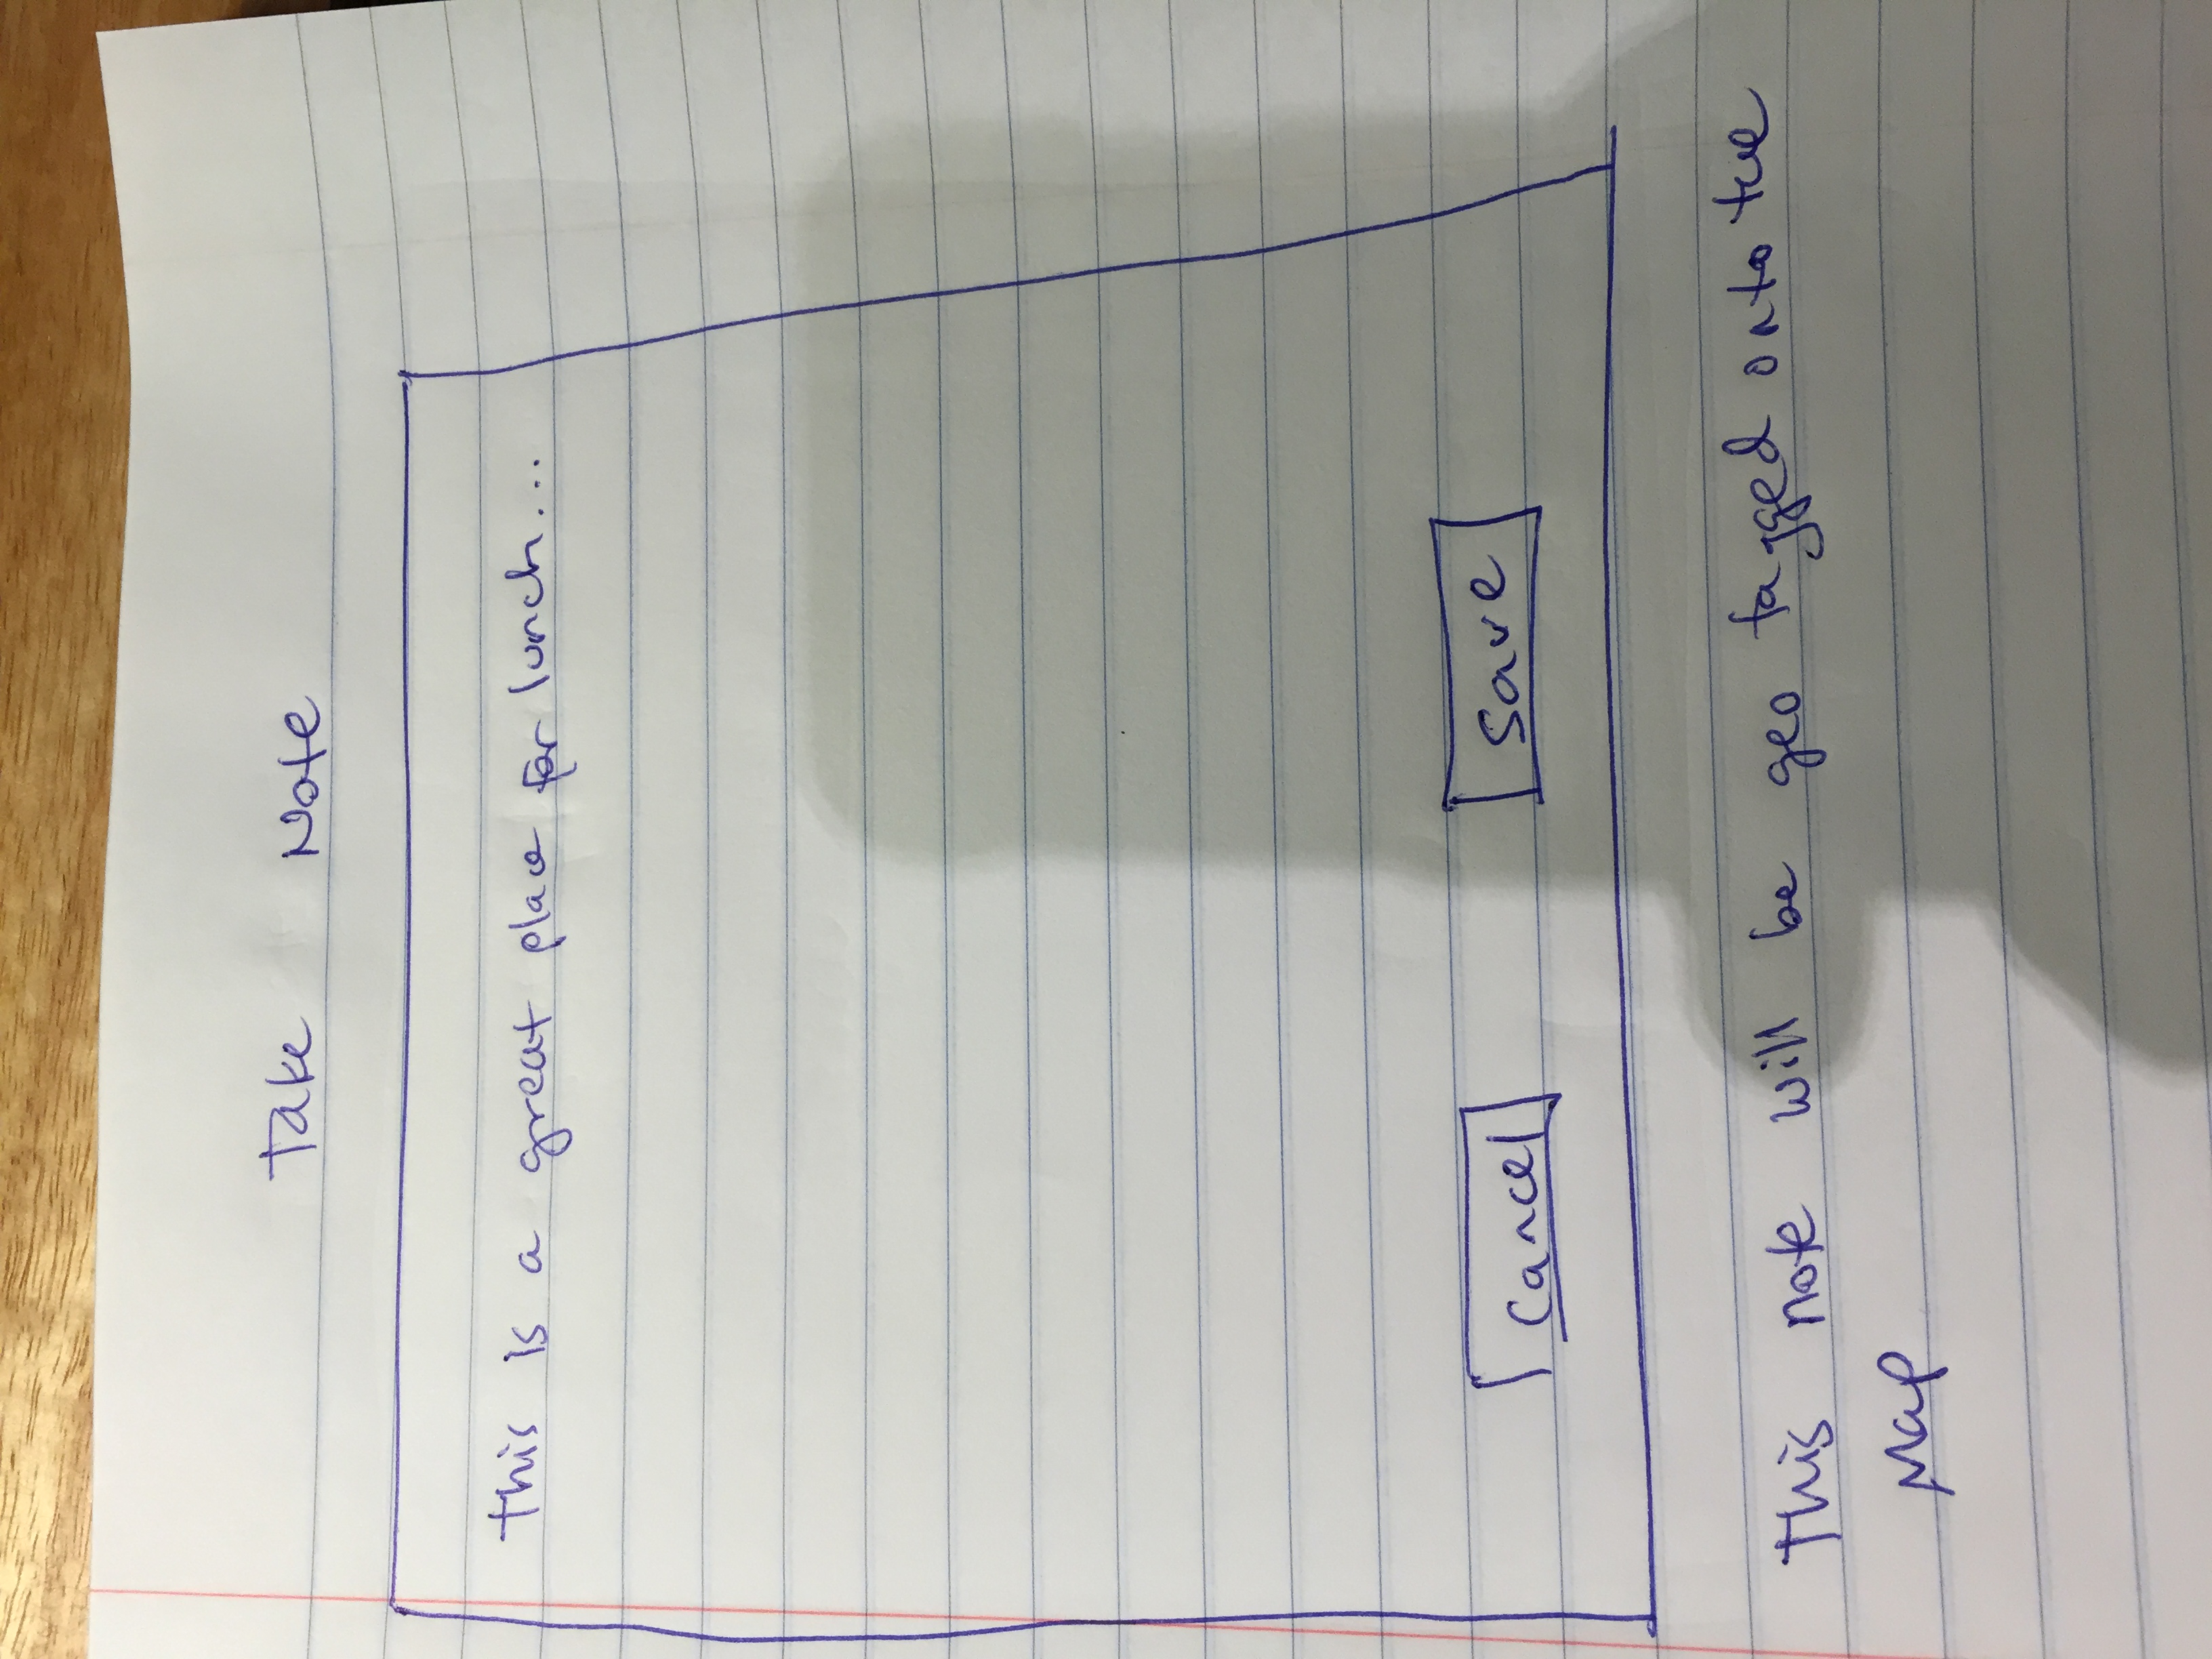 Take Note
This is a great place for lunch...
Cancel Save
This note will be geo tagged onto the
Map